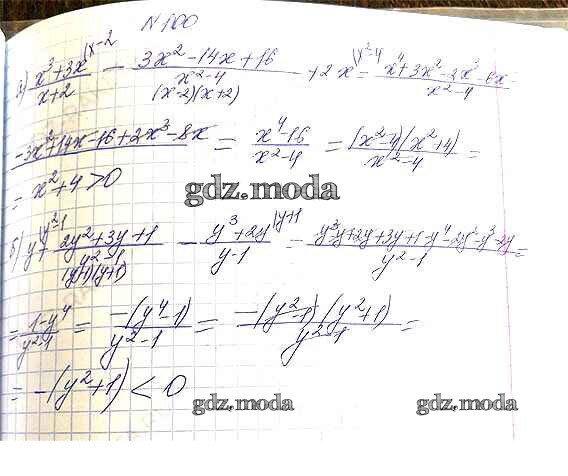 N 100
а) (x³+3x)/(x+2) |x-2 - (3x²-14x+16)/(x²-4) + 2x |x²-4 = (x⁴+3x²-2x³-6x-
(x-2)(x+2)
-3x²+14x-16+2x³-8x)/(x²-4) = (x⁴-16)/(x²-4) = ((x²-4)(x²+4))/(x²-4) =
= x²+4 > 0
gdz.moda
б) y |y²-1 + (2y²+3y+1)/(y²-1) - (y³+2y)/(y-1) |y+1 = (y³-y+2y²+3y+1-y⁴-2y²-y³-2y)/(y²-1) =
= (1-y⁴)/(y²-1) = (-(y⁴-1))/(y²-1) = (-(y²-1)(y²+1))/(y²-1) =
= -(y²+1) < 0
gdz.moda gdz.moda